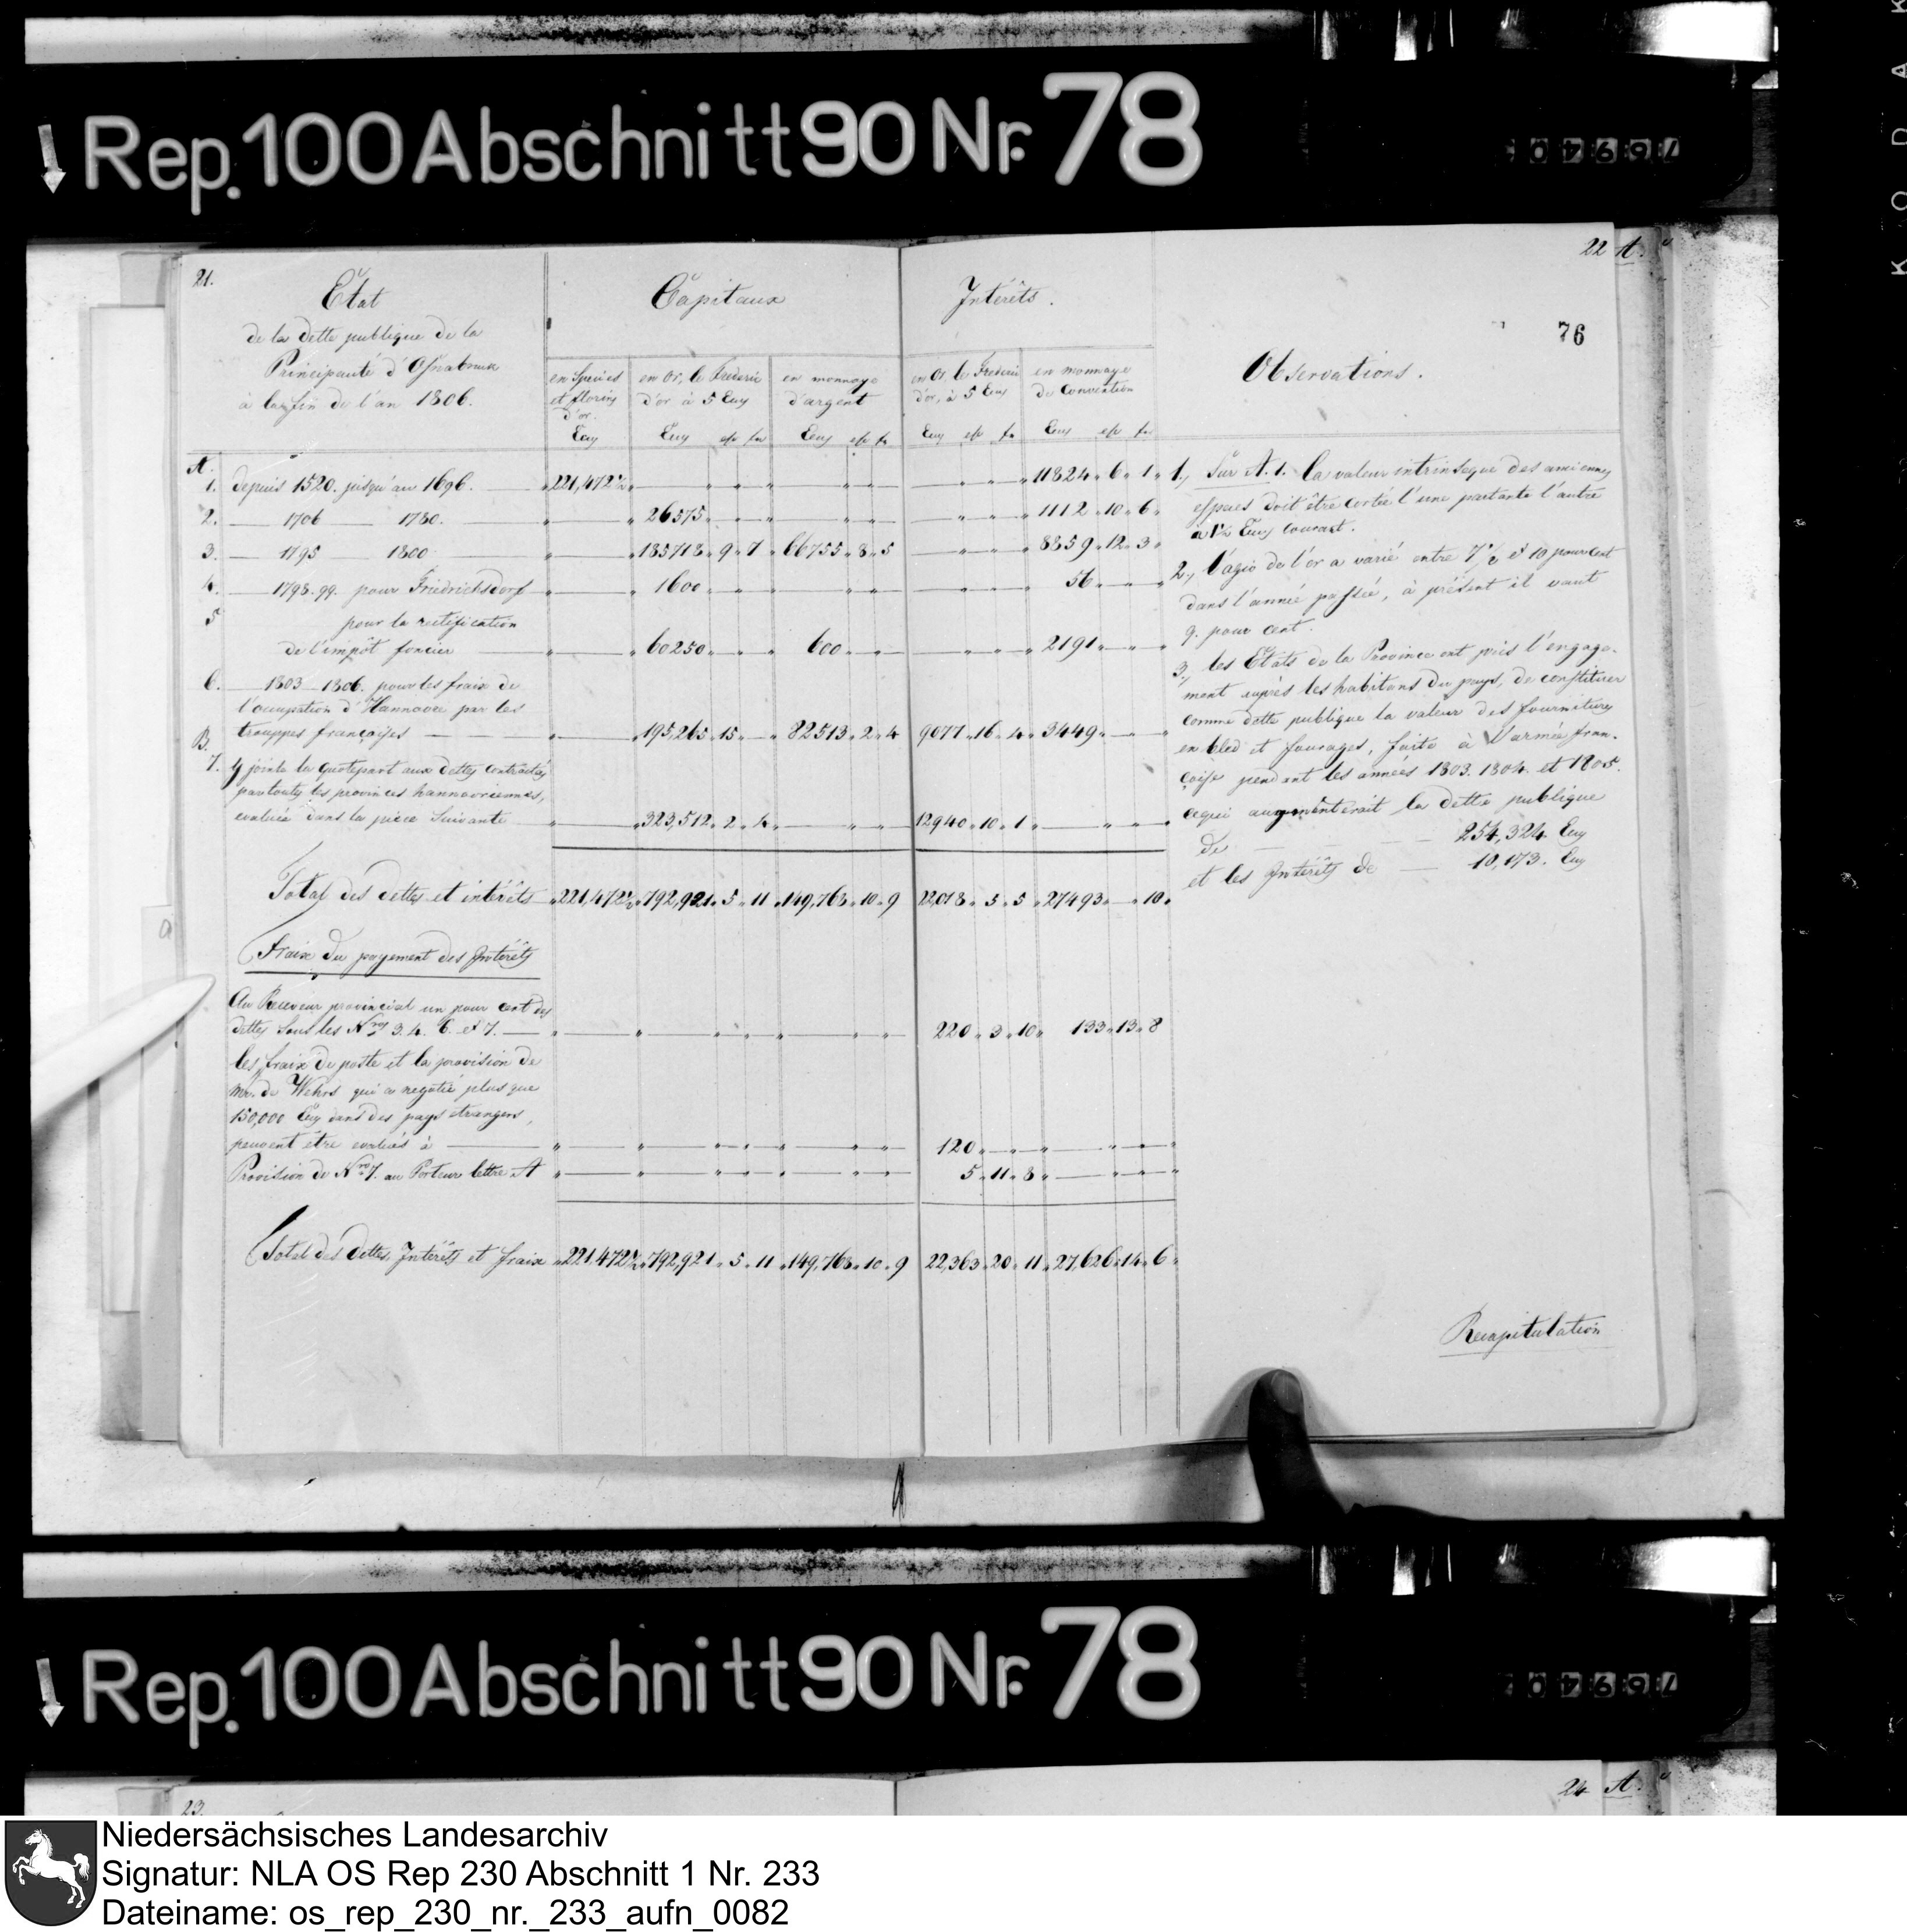 KODAK
Rep. 100 Abschnitt 90 Nr. 78
21.
22 A.
76
Etat
de la dette publique de la
Principauté d'Osnabruck
à la fin de l'an 1806.
Capitaux
Intérêts.
Observations.
en Species et florins d'or.
en Or, le Frederic d'or à 5
en monnaye d'argent
en Or, le Frederic d'or, à 5
en monnaye de Convention
A.
1. depuis 1520. jusqu'au 1696. 221,472½ 11824 „ 6 „ 1
2. — 1706 — 1780. 26575 1112 „ 10 „ 6
3. — 1795 1800 185718 „ 9 „ 7 66755 „ 8 „ 5 8859 „ 12 „ 3
4. — 1798.99. pour Friedrichsdorf 1600 56
5 pour la rectification
de l'impôt foncier 60250 600 2191
6. — 1803 — 1806. pour les fraix de
l'occupation d'Hannovre par les
trouppes françaises 195,265 „ 15 82513 „ 2 „ 4 9077 „ 16 „ 4 3449
B.
7. y joints la quotepart aux dettes contractées
par toutes les provinces hannovriennes,
evaluée dans la piece suivante 323,512 „ 2 „ 4 12940 „ 10 „ 1
Total des dettes et intérêts 221,472½ 792,921 „ 5 „ 11 149,768 „ 10 „ 9 22,018 „ 5 „ 5 27493 „ — „ 10
Fraix du payement des Intérêts
Au Receveur provincial un pour cent des
dettes sous les Nros 3. 4. 6. et 7. 220 „ 3 „ 10 133 „ 13 „ 8
les fraix de poste et la provision de
Mr. de Wehrs qui a negotié plus que
150,000 dans des pays etrangers,
peuvent être evalués à 120
Provision de Nro 7. au Porteur lettre A 5 „ 11 „ 8
Total des dettes, Intérêts et fraix 221,472½ 792,921 „ 5 „ 11 149,768 „ 10 „ 9 22,363 „ 20 „ 11 27,626 „ 14 „ 6
1., Sur A. 1. la valeur intrinseque des anciennes
especes doit être cortée l'une partante l'autre
à 1½ courant.
2., l'agio de l'or a varié entre 7½ et 10 pour cent
dans l'année passée, à présent il vaut
9. pour cent.
3., les Etats de la Province ont pris l'engage-
ment auprès les habitans du pays, de constituer
comme dette publique la valeur des fournitures
en bled et fourages, faite à l'armée fran-
çoise pendent les années 1803. 1804. et 1805.
ce qui augmenterait la dette publique
de — 254,324.
et les Intérêts de — 10,173.
Recapitulation
Rep. 100 Abschnitt 90 Nr. 78
23.
24 A.
Niedersächsisches Landesarchiv
Signatur: NLA OS Rep 230 Abschnitt 1 Nr. 233
Dateiname: os_rep_230_nr._233_aufn_0082